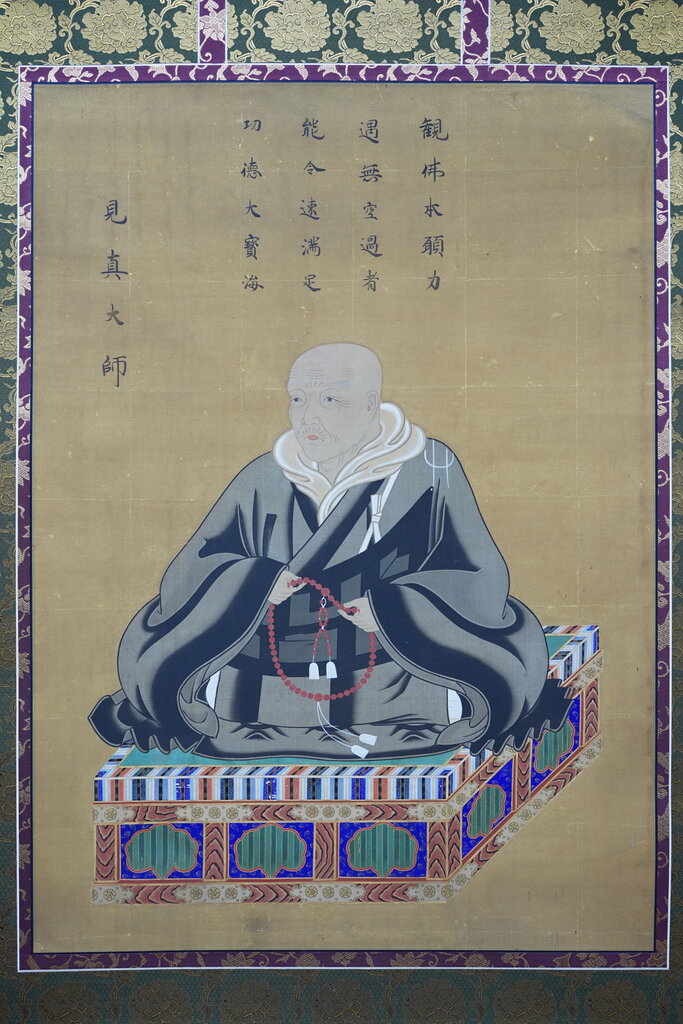 観佛本願力
遇無空過者
能令速満足
功德大寳海
見真大師